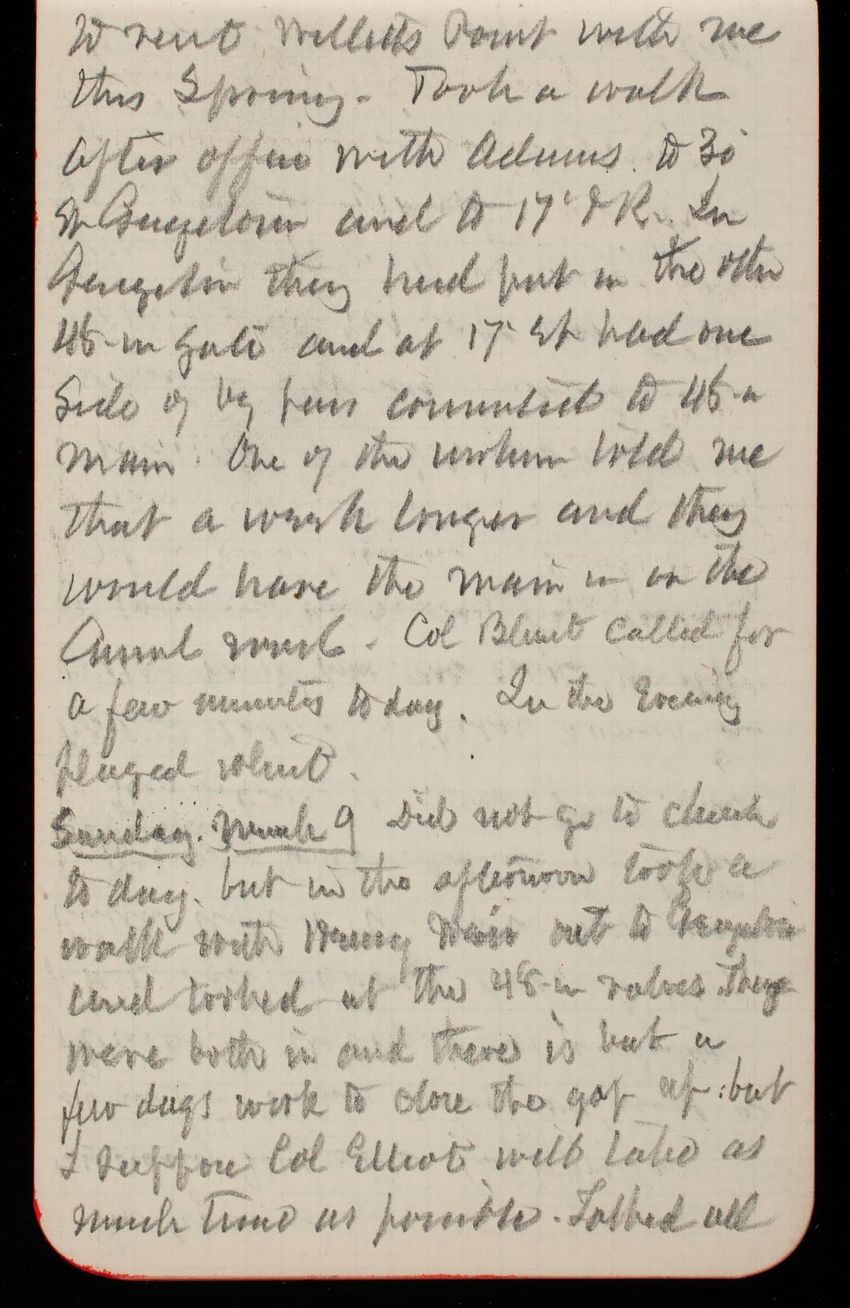 to visit Willetts Point with me
this Spring. Took a walk
after office with Adams. to 3
St Georgetown and to 17 & R. In
Georgetown they had put in the other
48-in gate and at 17 St had one
side of big connected to 48-in
main. One of the told me
that a week longer and they
would have the main in on the
Canal road. Col Blunt called for
a few minutes today. In the Evening
played whist.
Sunday. March 9 Did not go to church
today. but in the afternoon took a
walk with Harry out to Georgetown
and looked at the 48-in valves. They
were both in and there is but a
few days work to close the gap up: but
I suppose Col Elliot will take as
much time as possible. Talked all